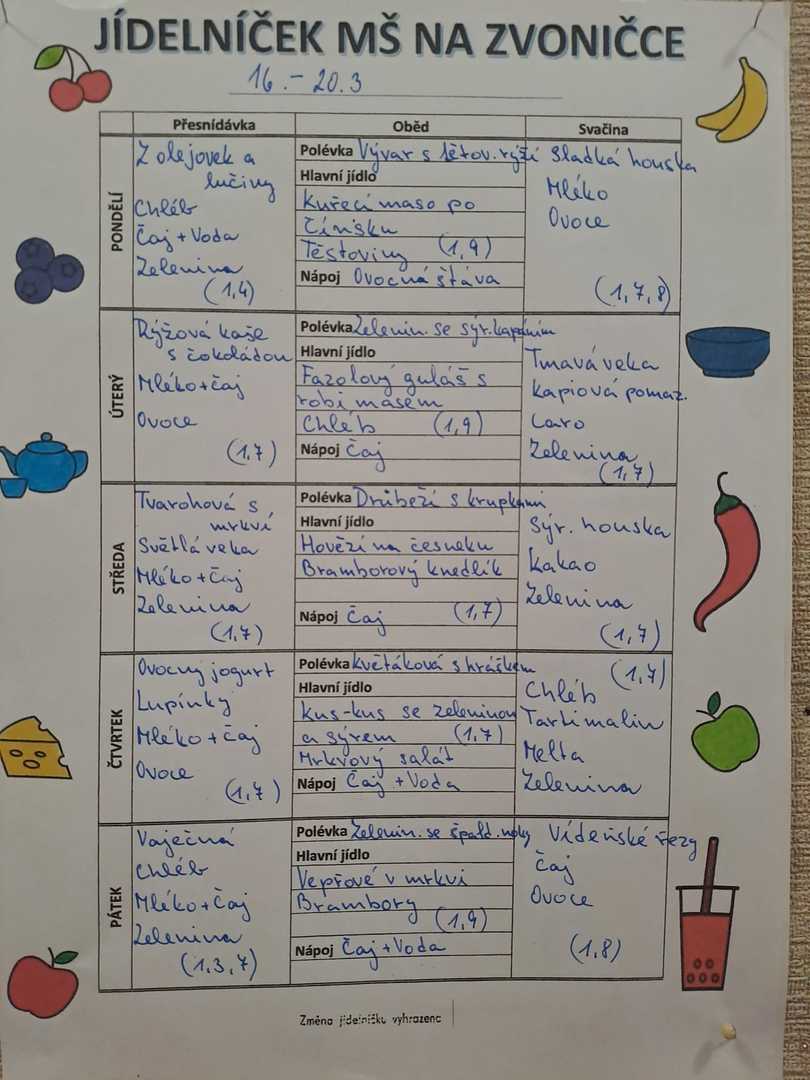 JÍDELNÍČEK MŠ NA ZVONIČCE
16.-20.3
Přesnídávka Oběd Svačina
PONDĚLÍ
Z olejovek a
lučiny
Chléb
Čaj + Voda
Zelenina
(1,4)
Polévka Vývar s těstov. rýží
Hlavní jídlo
Kuřecí maso po
čínsku
Těstoviny (1,9)
Nápoj Ovocná šťáva
Sladká houska
Mléko
Ovoce
(1,7,8)
ÚTERÝ
Rýžová kaše
s čokoládou
Mléko+čaj
Ovoce
(1,7)
Polévka Zelenin. se sýr. kapáním
Hlavní jídlo
Fazolový guláš s
robi masem
Chléb (1,9)
Nápoj čaj
Tmavá veka
Kapiová pomaz.
Caro
Zelenina
(1,7)
STŘEDA
Tvarohová s
mrkví
Světlá veka
Mléko+čaj
Zelenina
(1,7)
Polévka Drůbeží s krupkami
Hlavní jídlo
Hovězí na česneku
Bramborový knedlík
Nápoj čaj (1,7)
Sýr. houska
Kakao
Zelenina
(1,7)
ČTVRTEK
Ovocný jogurt
Lupínky
Mléko + čaj
Ovoce
(1,7)
Polévka Květáková s hráškem
Hlavní jídlo
Kus-kus se zeleninou
a sýrem (1,7)
Mrkvový salát
Nápoj Čaj + Voda
(1,7)
Chléb
Tartimalin
Melta
Zelenina
PÁTEK
Vaječná
Chléb
Mléko+čaj
Zelenina
(1,3,7)
Polévka Zelenin. se špald. noky
Hlavní jídlo
Vepřové v mrkvi
Brambory
(1,9)
Nápoj Čaj + Voda
Vídeňské řezy
Čaj
Ovoce
(1,8)
Změna jídelníčku vyhrazena